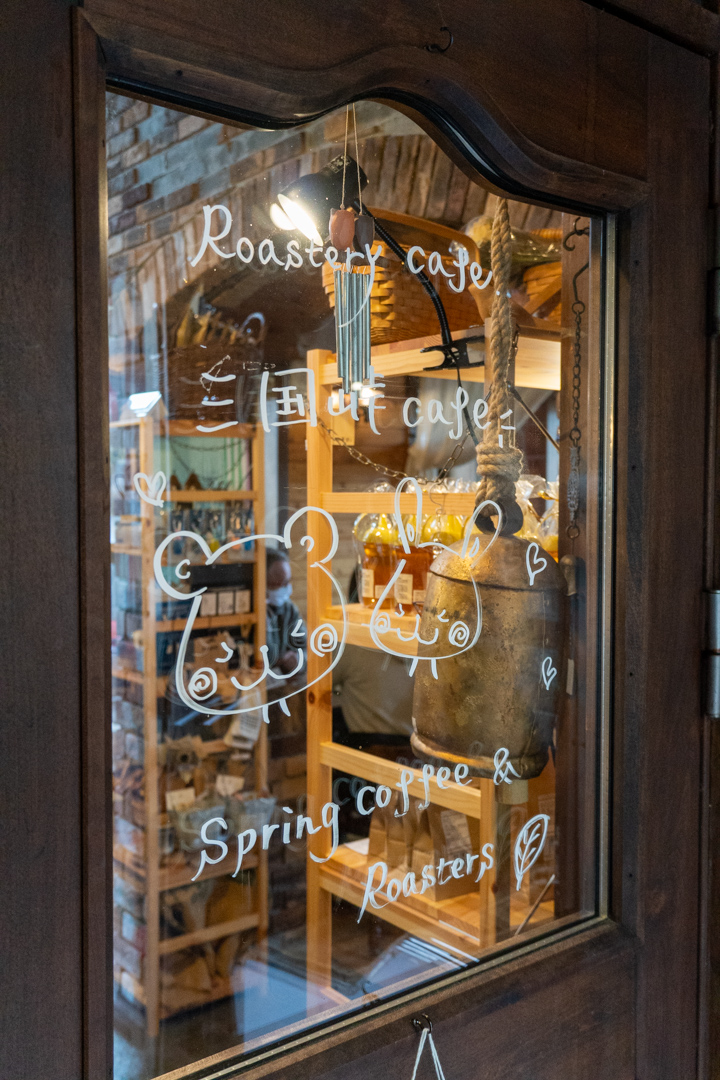 Roastery cafe
三国峠 cafe
Spring coffee &
Roasters